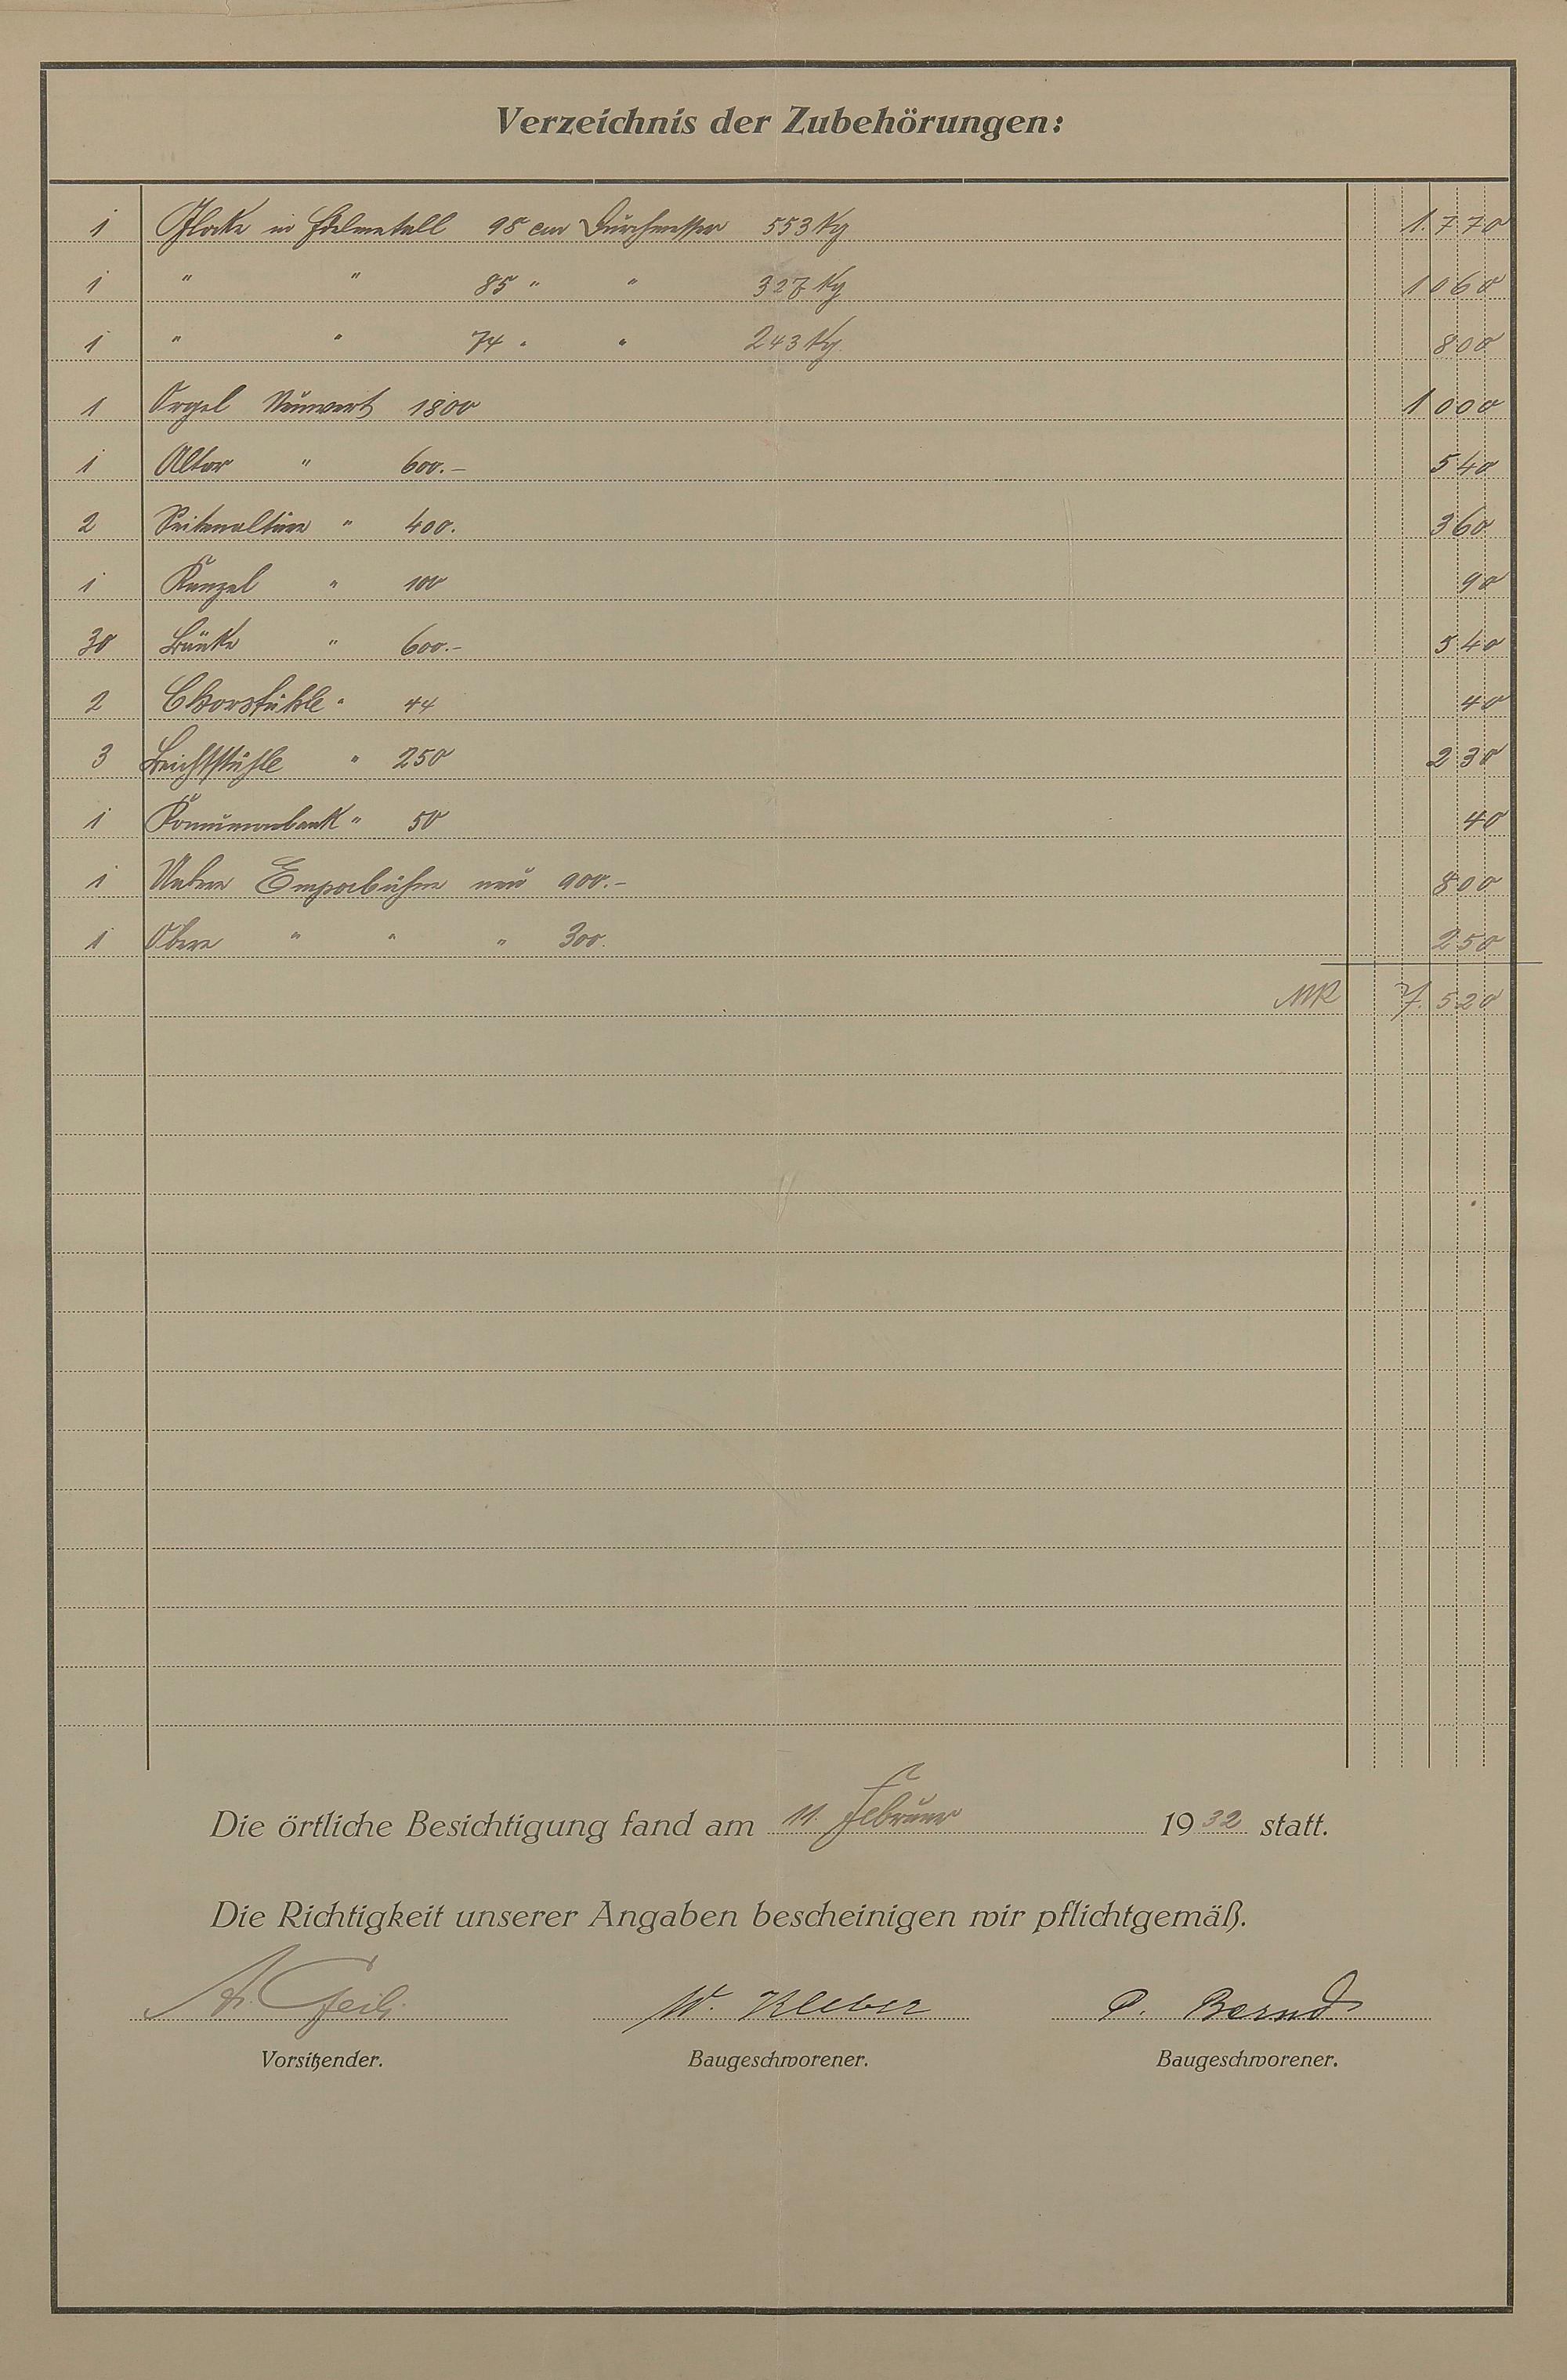 Verzeichnis der Zubehörungen:
1 Glocke in Edelmetall 98 cm Durchmesser 553 Kg 1.770
1 " " 85 " " 327 Kg 1060
1 " " 74 " " 243 Kg 800
1 Orgel Neuwert 1800 1000
1 Altar " 600.- 540
2 Seitenaltäre " 400. 360
1 Kanzel " 100 90
30 Bänke " 600.- 540
2 Chorstühle " 44 40
3 Beichtstühle " 250 230
1 Kommunionbank " 50 40
1 Untere Emporbühne neu 900.- 800
1 Obere " " " 300. 250
MK 7.520
Die örtliche Besichtigung fand am 11. Februar 1932 statt.
Die Richtigkeit unserer Angaben bescheinigen wir pflichtgemäß.
W. Kleber P. Bernd
Vorsitzender. Baugeschworener. Baugeschworener.